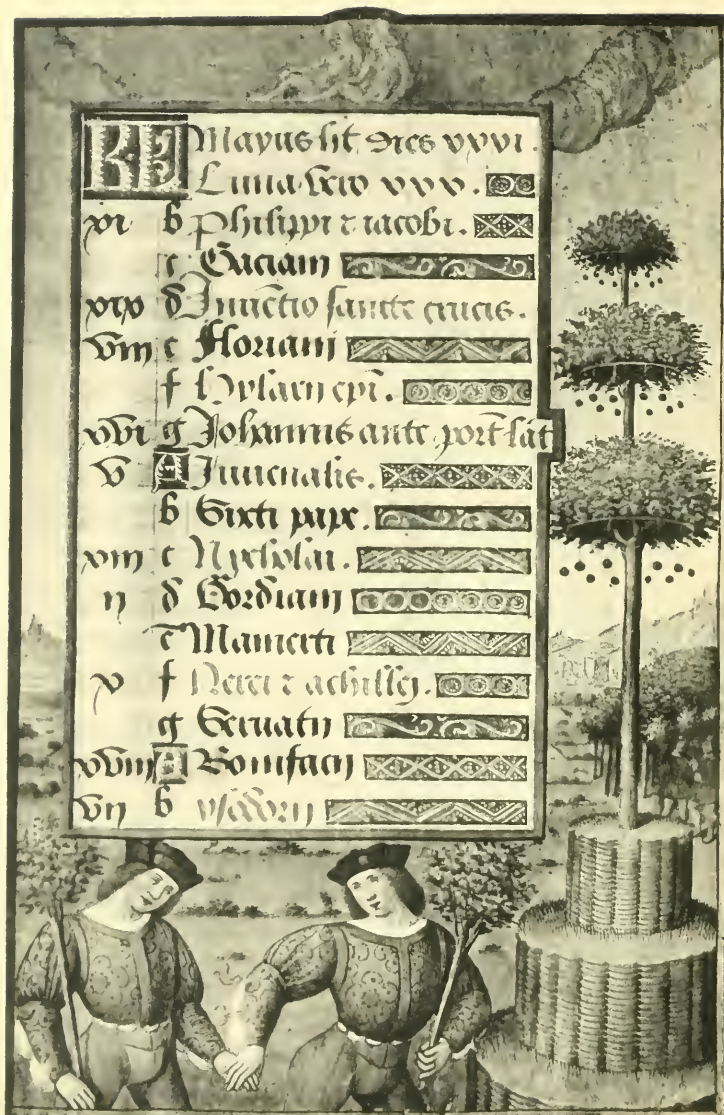 KL Mayus hit dies xxxi.
Luna vero xxx.
xi b Philippi z iacobi.
c Gaciani
xix d Inuẽctio sancte crucis.
viii e Floriani
f Hylarij epi.
xvi g Johannis ante port lat
v A Iuuenalis.
b Sixti pape.
xiii c Nycholai.
ii d Gordiani
e Mamerti
x f Nerei z achillej.
g Seruatij
xviii A Bonifacij
vii b ysidorij